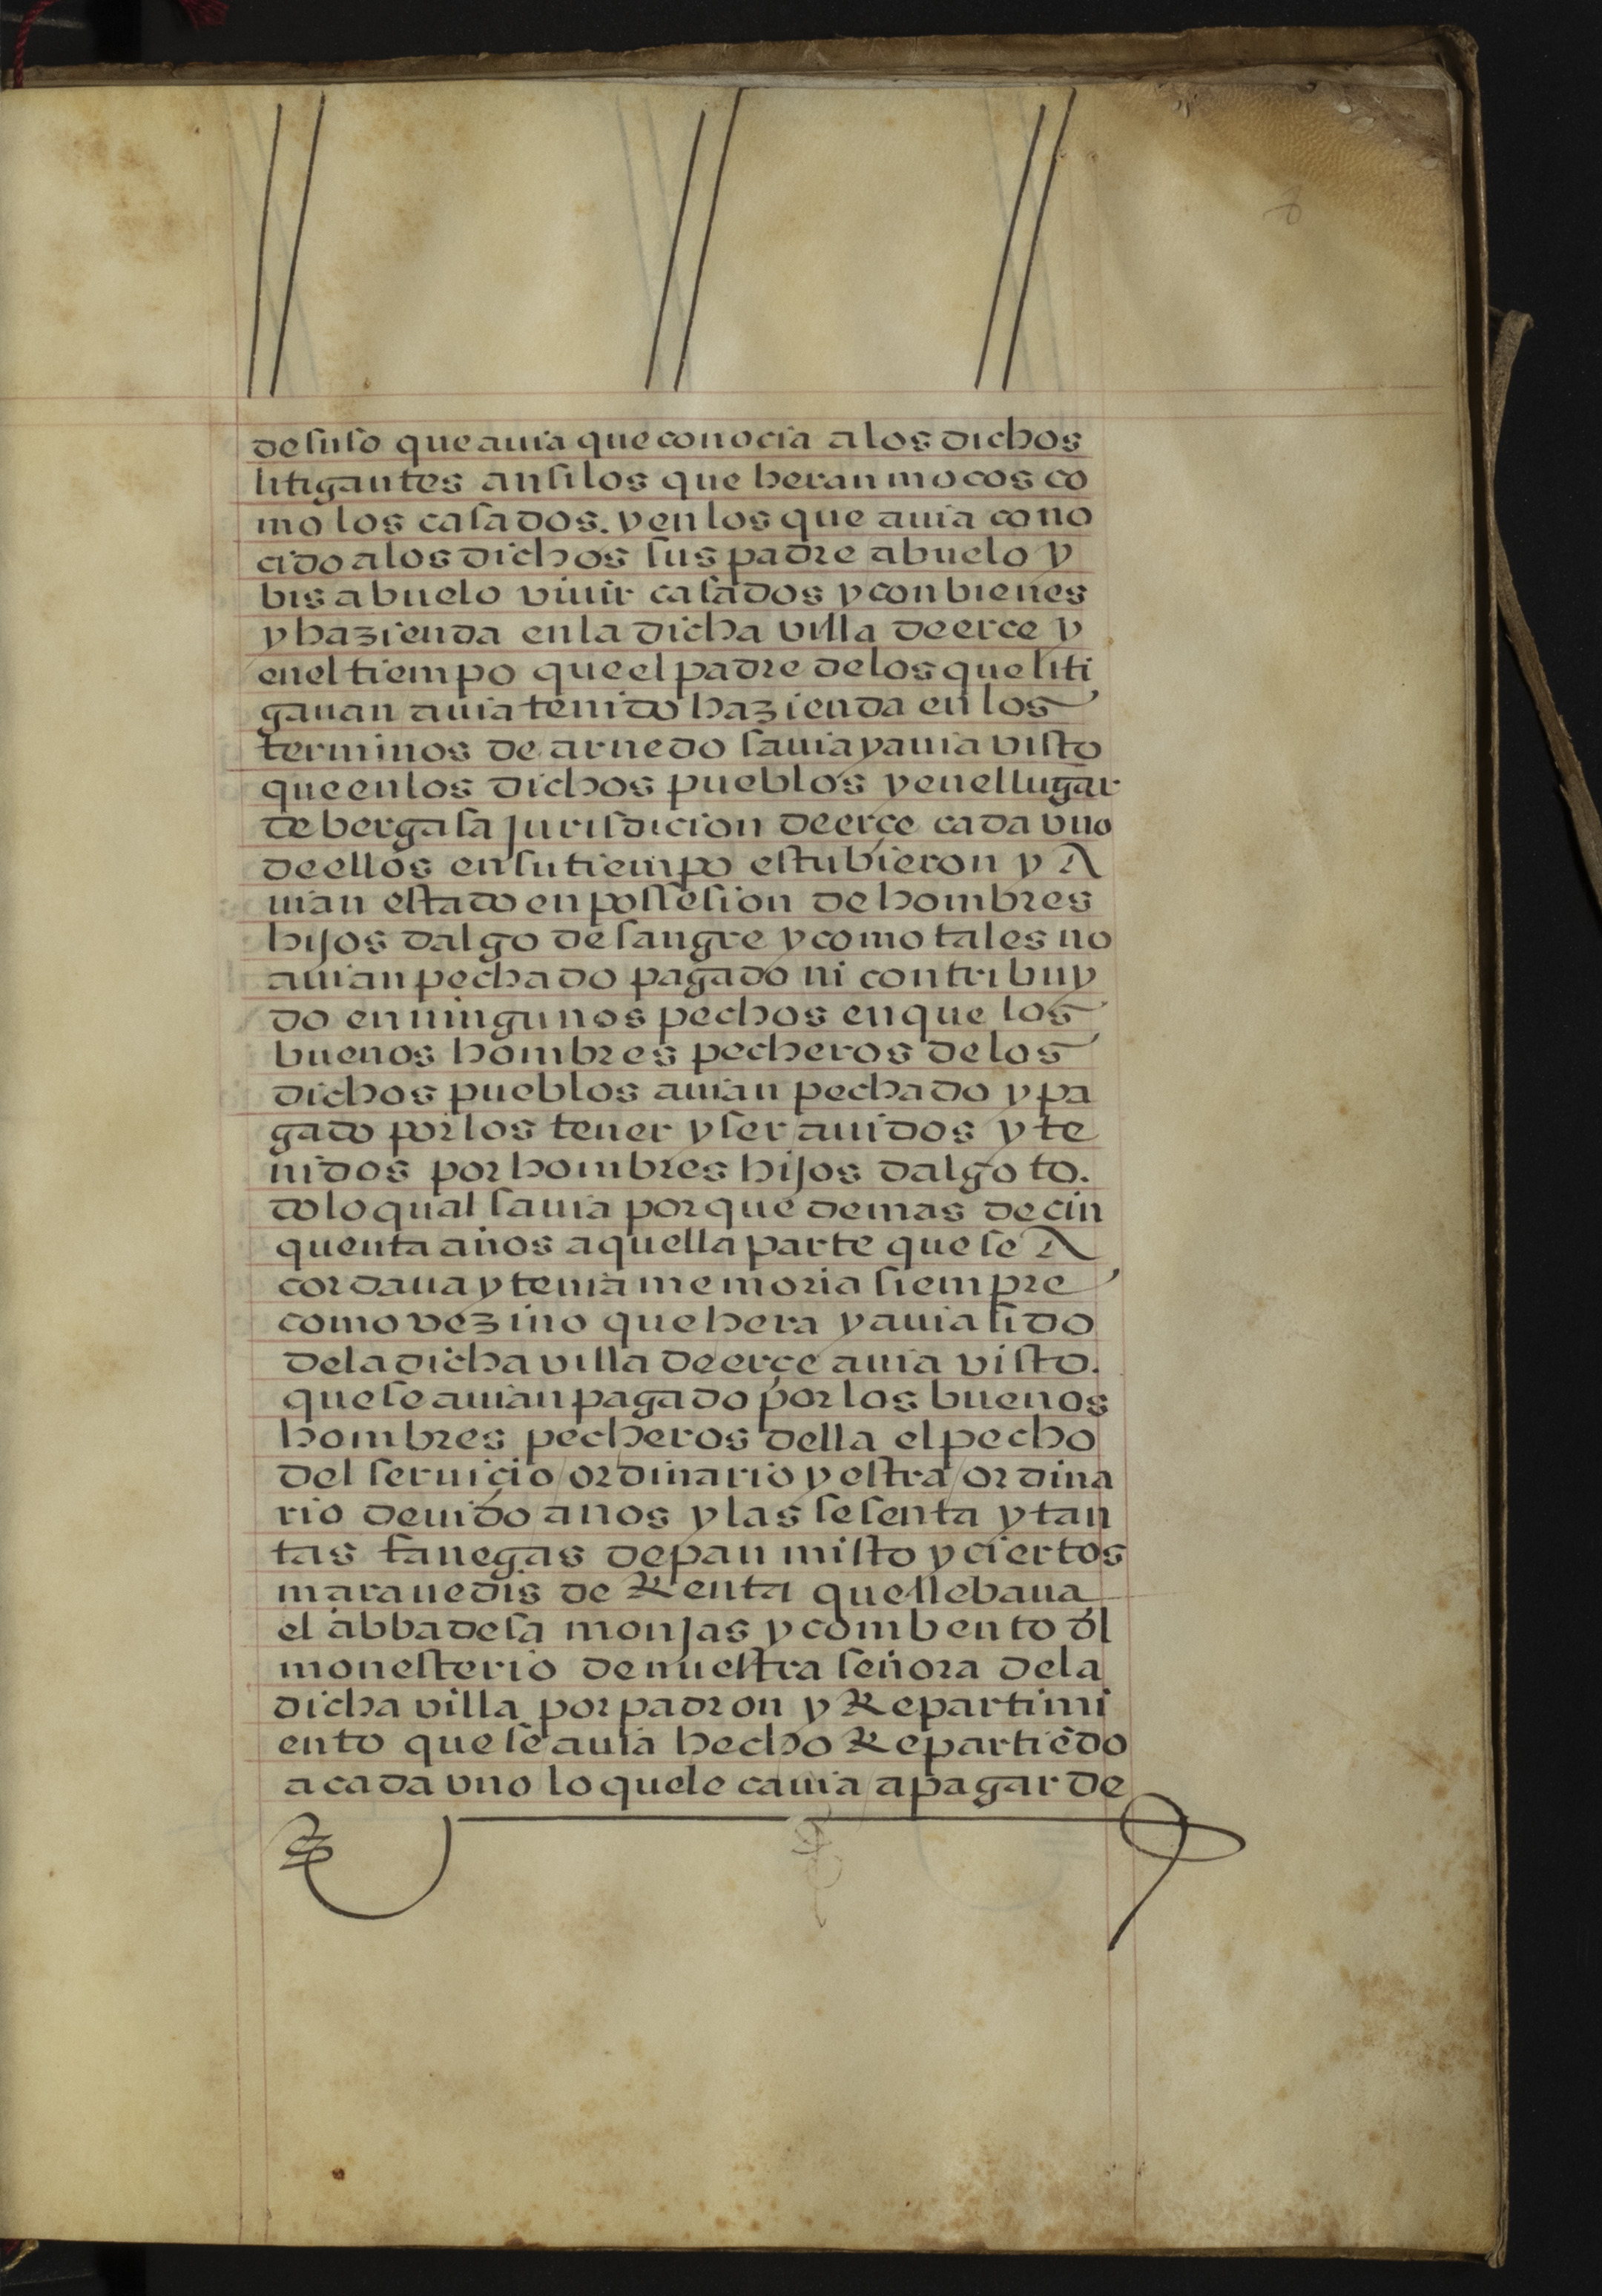 8
desuso que auia que conocia a los dichos
litigantes ansi los que heran mocos co
mo los casados. y en los que auia cono
cido a los dichos sus padre abuelo y
bisabuelo viuir casados y con bienes
y hazienda en la dicha villa de erce y
en el tiempo que el padre de los que liti
gauan auia tenido hazienda en los
terminos de arnedo sauia y auia visto
que en los dichos pueblos y en el lugar
de bergasa jurisdicion de erçe cada vno
de ellos en su tiempo estubieron y A
uian estado en possesion de hombres
hijos dalgo de sangre y como tales no
auian pechado pagado ni contribuy
do en ningunos pechos en que los
buenos hombres pecheros de los
dichos pueblos auian pechado y pa
gado por los tener y ser auidos y te
nidos por hombres hijos dalgo to.
do lo qual sauia porque demas de cin
quenta años a quella parte que se A
cordaua y tenia memoria siempre
como vezino que hera y auia sido
de la dicha villa de erçe auia visto.
que se auian pagado por los buenos
hombres pecheros della el pecho
del seruiçio ordinario y estra ordina
rio deuido anos y las sesenta y tan
tas fanegas de pan misto y ciertos
marauedis de Renta que llebaua
el abbadesa monjas y combento dl
monesterio de nuestra señora de la
dicha villa por padron y Repartimi
ento que se auia hecho Repartiēdo
a cada vno lo que le cauia a pagar de